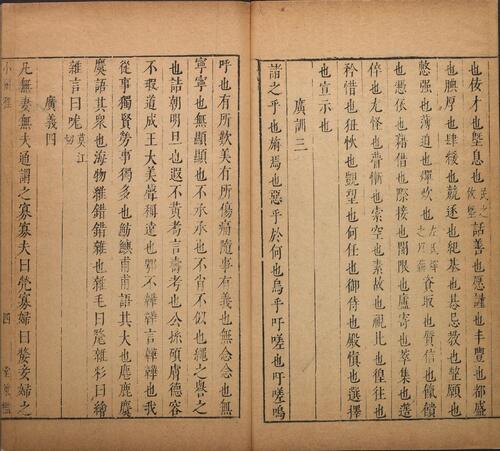 才也墍息也民之攸墍話善也愿謹也丰豐也都盛
也腆厚也肆緩也競逐也紀基也惎忌教也整願也
強也薄迫也燀炊也左氏傳之以薪資取也質信也償
也憑依也藉借也際接也閡限也廬寄也萃集也
倅也尤怪也瞢慚也索空也素故也視比也徨往也
矜惜也狃忕也覬望也何任也御侍也殿慎也選擇
也宣示也
廣訓三
諸之乎也旃焉也惡乎於何也烏乎吁嗟也吁嗟嗚
呼也有所歎美有所傷痛隨事有義也無念念也無
寧寧也無顯顯也不承承也不肖不似也繩之譽之
也詰朝明旦也遐不黃考言壽考也公孫碩膚德容
不瑕道成王大美聲稱遠也鄂不韡韡言韡韡也我
從事獨賢勞事獨多也魴鱮甫甫語其大也麀鹿麌
麌語其衆也海物雜錯錯雜也雜毛曰毳雜彩曰繪
雜言曰哤莫江
廣義四
凡無妻無夫通謂之寡寡夫曰煢寡婦曰嫠妾婦之
小爾雅 四